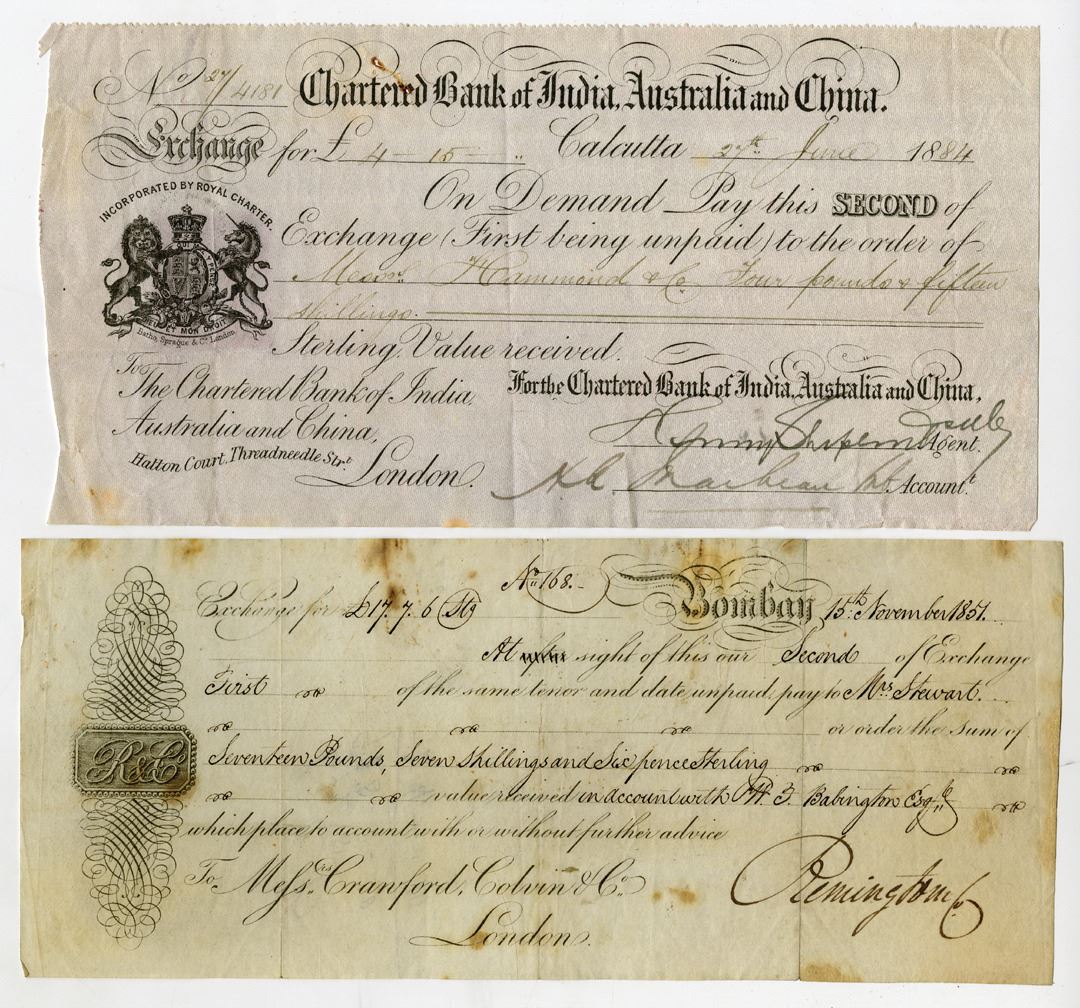 No 27/4181 Chartered Bank of India, Australia and China.
Exchange for £ 4 - 15 - " Calcutta 27th June 1884
INCORPORATED BY ROYAL CHARTER.
On Demand Pay this SECOND of
Exchange (First being unpaid) to the order of
Messrs. Hammond & Co. Four pounds & fifteen
shillings.
DIEU ET MON DROIT
Batho, Sprague & Co. London.
Sterling, Value received.
To
The Chartered Bank of India,
Australia and China,
Hatton Court, Threadneedle Strt.
London.
For the Chartered Bank of India, Australia and China,
Agent.
Accountt.
No. 168.
Exchange for £17. 7. 6 Stg Bombay 15th November 1851.
At sight of this our Second of Exchange
First of the same tenor and date unpaid, pay to Mrs Stewart.
or order the sum of
Seventeen Pounds, Seven shillings and Six pence Sterling
R & Co
value received in account with Babington Esqr
which place to account with or without further advice
To Messrs. Crawford, Colvin & Co.
London.
Remington & Co